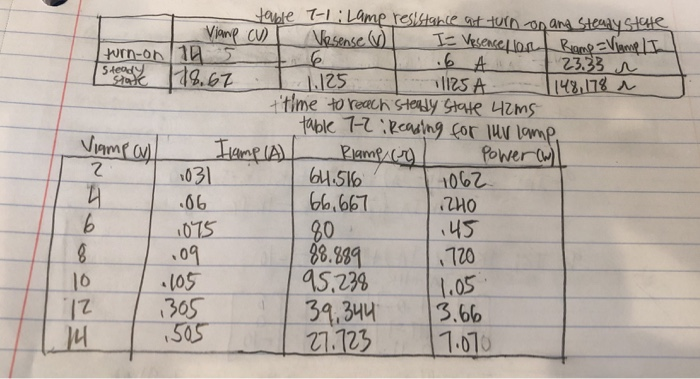 table 7-1: Lamp resistance at turn-on and steady state
Vlamp (V) VRsense (V) I = Vesence/10Ω Rlamp = Vlamp/I
turn-on 14 6 .6 A 23.33 Ω
steady state 18.67 1.125 .1125 A 148.178 Ω
time to reach steady state 42ms
table 7-2: Reading for 14V lamp
Vlamp (V) Ilamp (A) Rlamp (Ω) Power (W)
2 .031 64.516 .062
4 .06 66.667 .240
6 .075 80 .45
8 .09 88.889 .720
10 .105 95.238 1.05
12 .305 39.344 3.66
14 .505 27.723 7.070